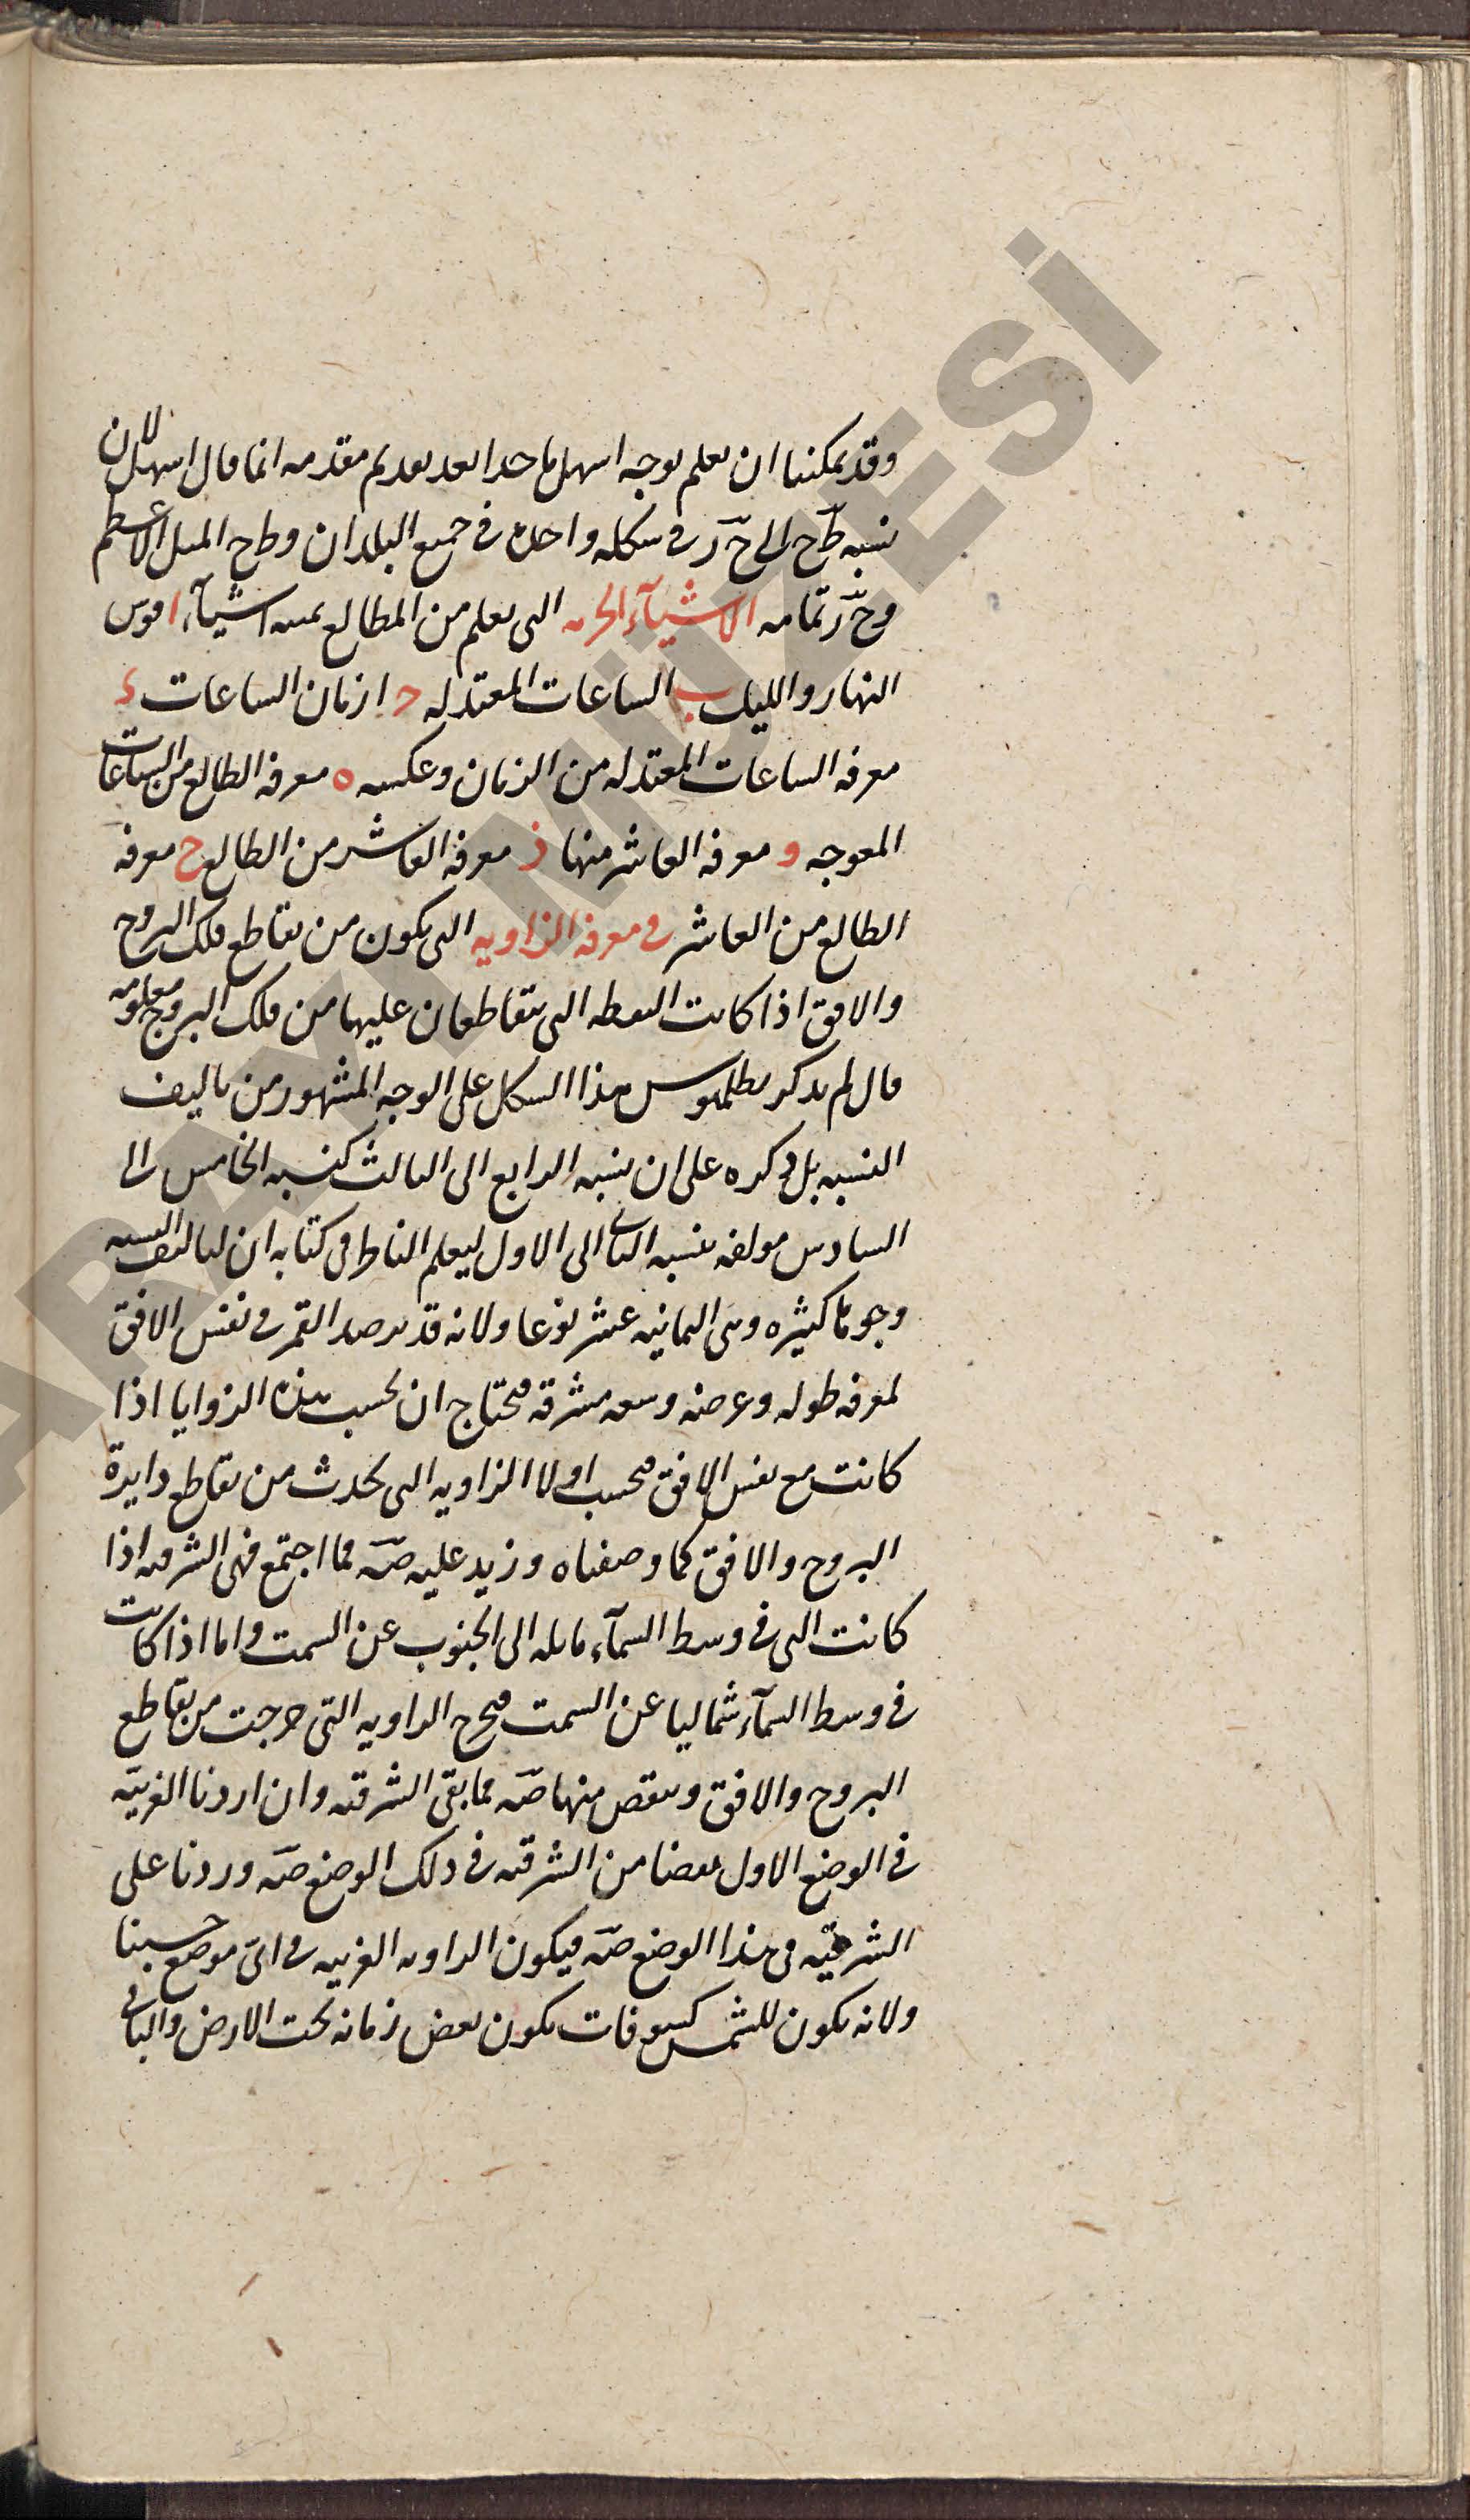 وقد يمكننا ان نعلم بوجه اسهل ماخدا بعد تقديم مقدمه انما قال اسهل لان
نسبه طح الى ح ز فى شكله واحده فى جميع البلدان وطح الميل الاعظم
وح ز تمامه الاشيآء الجزئيه التى تعلم من المطالع ثمنيه اشيآء ا قوس
النهار والليل ب الساعات المعتدله ح ازمان الساعات د
معرفه الساعات المعتدله من الزمان وعكسه ه معرفه الطالع من الساعات
المعوجه و معرفه العاشر منها ز معرفه العاشر من الطالع ح معرفه
الطالع من العاشر فى معرفه الزاويه التى يكون من تقاطع فلك البروج
والافق اذا كانت النقطه التى يتقاطعان عليها من فلك البروج معلومه
قال لم يذكر بطلميوس هذا الشكل على الوجه المشهور من تاليف
النسبه بل ذكره على ان نسبه الرابع الى الثالث كنسبه الخامس الى
السادس مولفه بنسبه الثانى الى الاول ليعلم الناظر فى كتابه ان لتاليف النسبه
وجوها كثيره وهى الثمانيه عشر نوعا ولانه قد يرصد القمر فى نفس الافق
لمعرفه طوله وعرضه وسعه مشرقه فيحتاج ان يحسب هذه الزوايا اذا
كانت مع نفس الافق فيحسب اولا الزاويه التى يحدث من تقاطع دايرة
البروج والافق كما وصفناه وزيد عليه صه فما اجتمع فهى الشرقيه اذا
كانت التى فى وسط السمآء مايله الى الجنوب عن السمت واما اذا كانت
فى وسط السمآء شماليا عن السمت فيخرج الزاويه التى خرجت من تقاطع
البروج والافق وينقص منها صه فما بقى الشرقيه وان اردنا الغربيّه
فى الوضع الاول نقصنا من الشرقيه فى ذلك الوضع صه وزدنا على
الشرقيّه فى هذا الوضع صه فيكون الزاويه الغربيه فى اىّ موضع حسبنا
ولانه يكون للشمس كسوفات يكون بعض زمانه تحت الارض والباقى